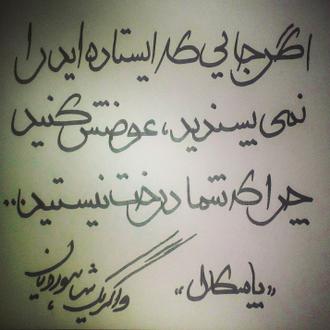 اگر جایی که ایستاده اید را
نمی پسندید، عوضش کنید
چرا که شما درخت نیستید...
«پاسکال»